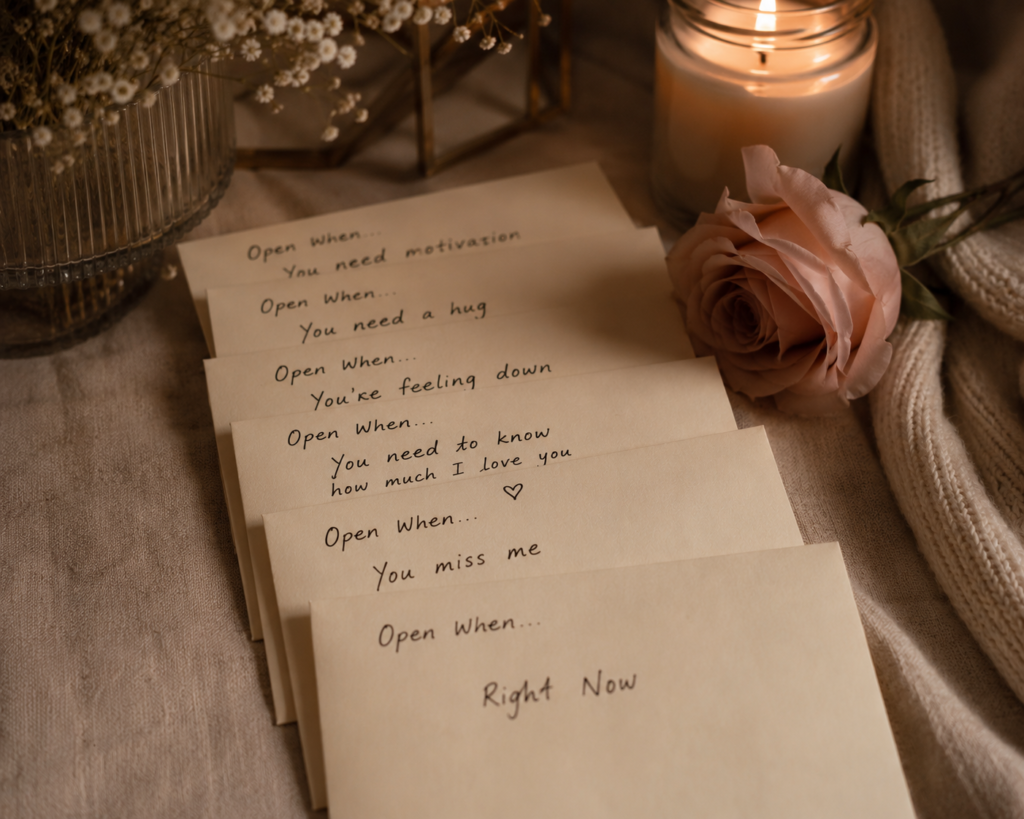 Open When...
You need motivation
Open When...
You need a hug
Open When...
You're feeling down
Open When...
You need to know
how much I love you
♡
Open When...
You miss me
Open When...
Right Now